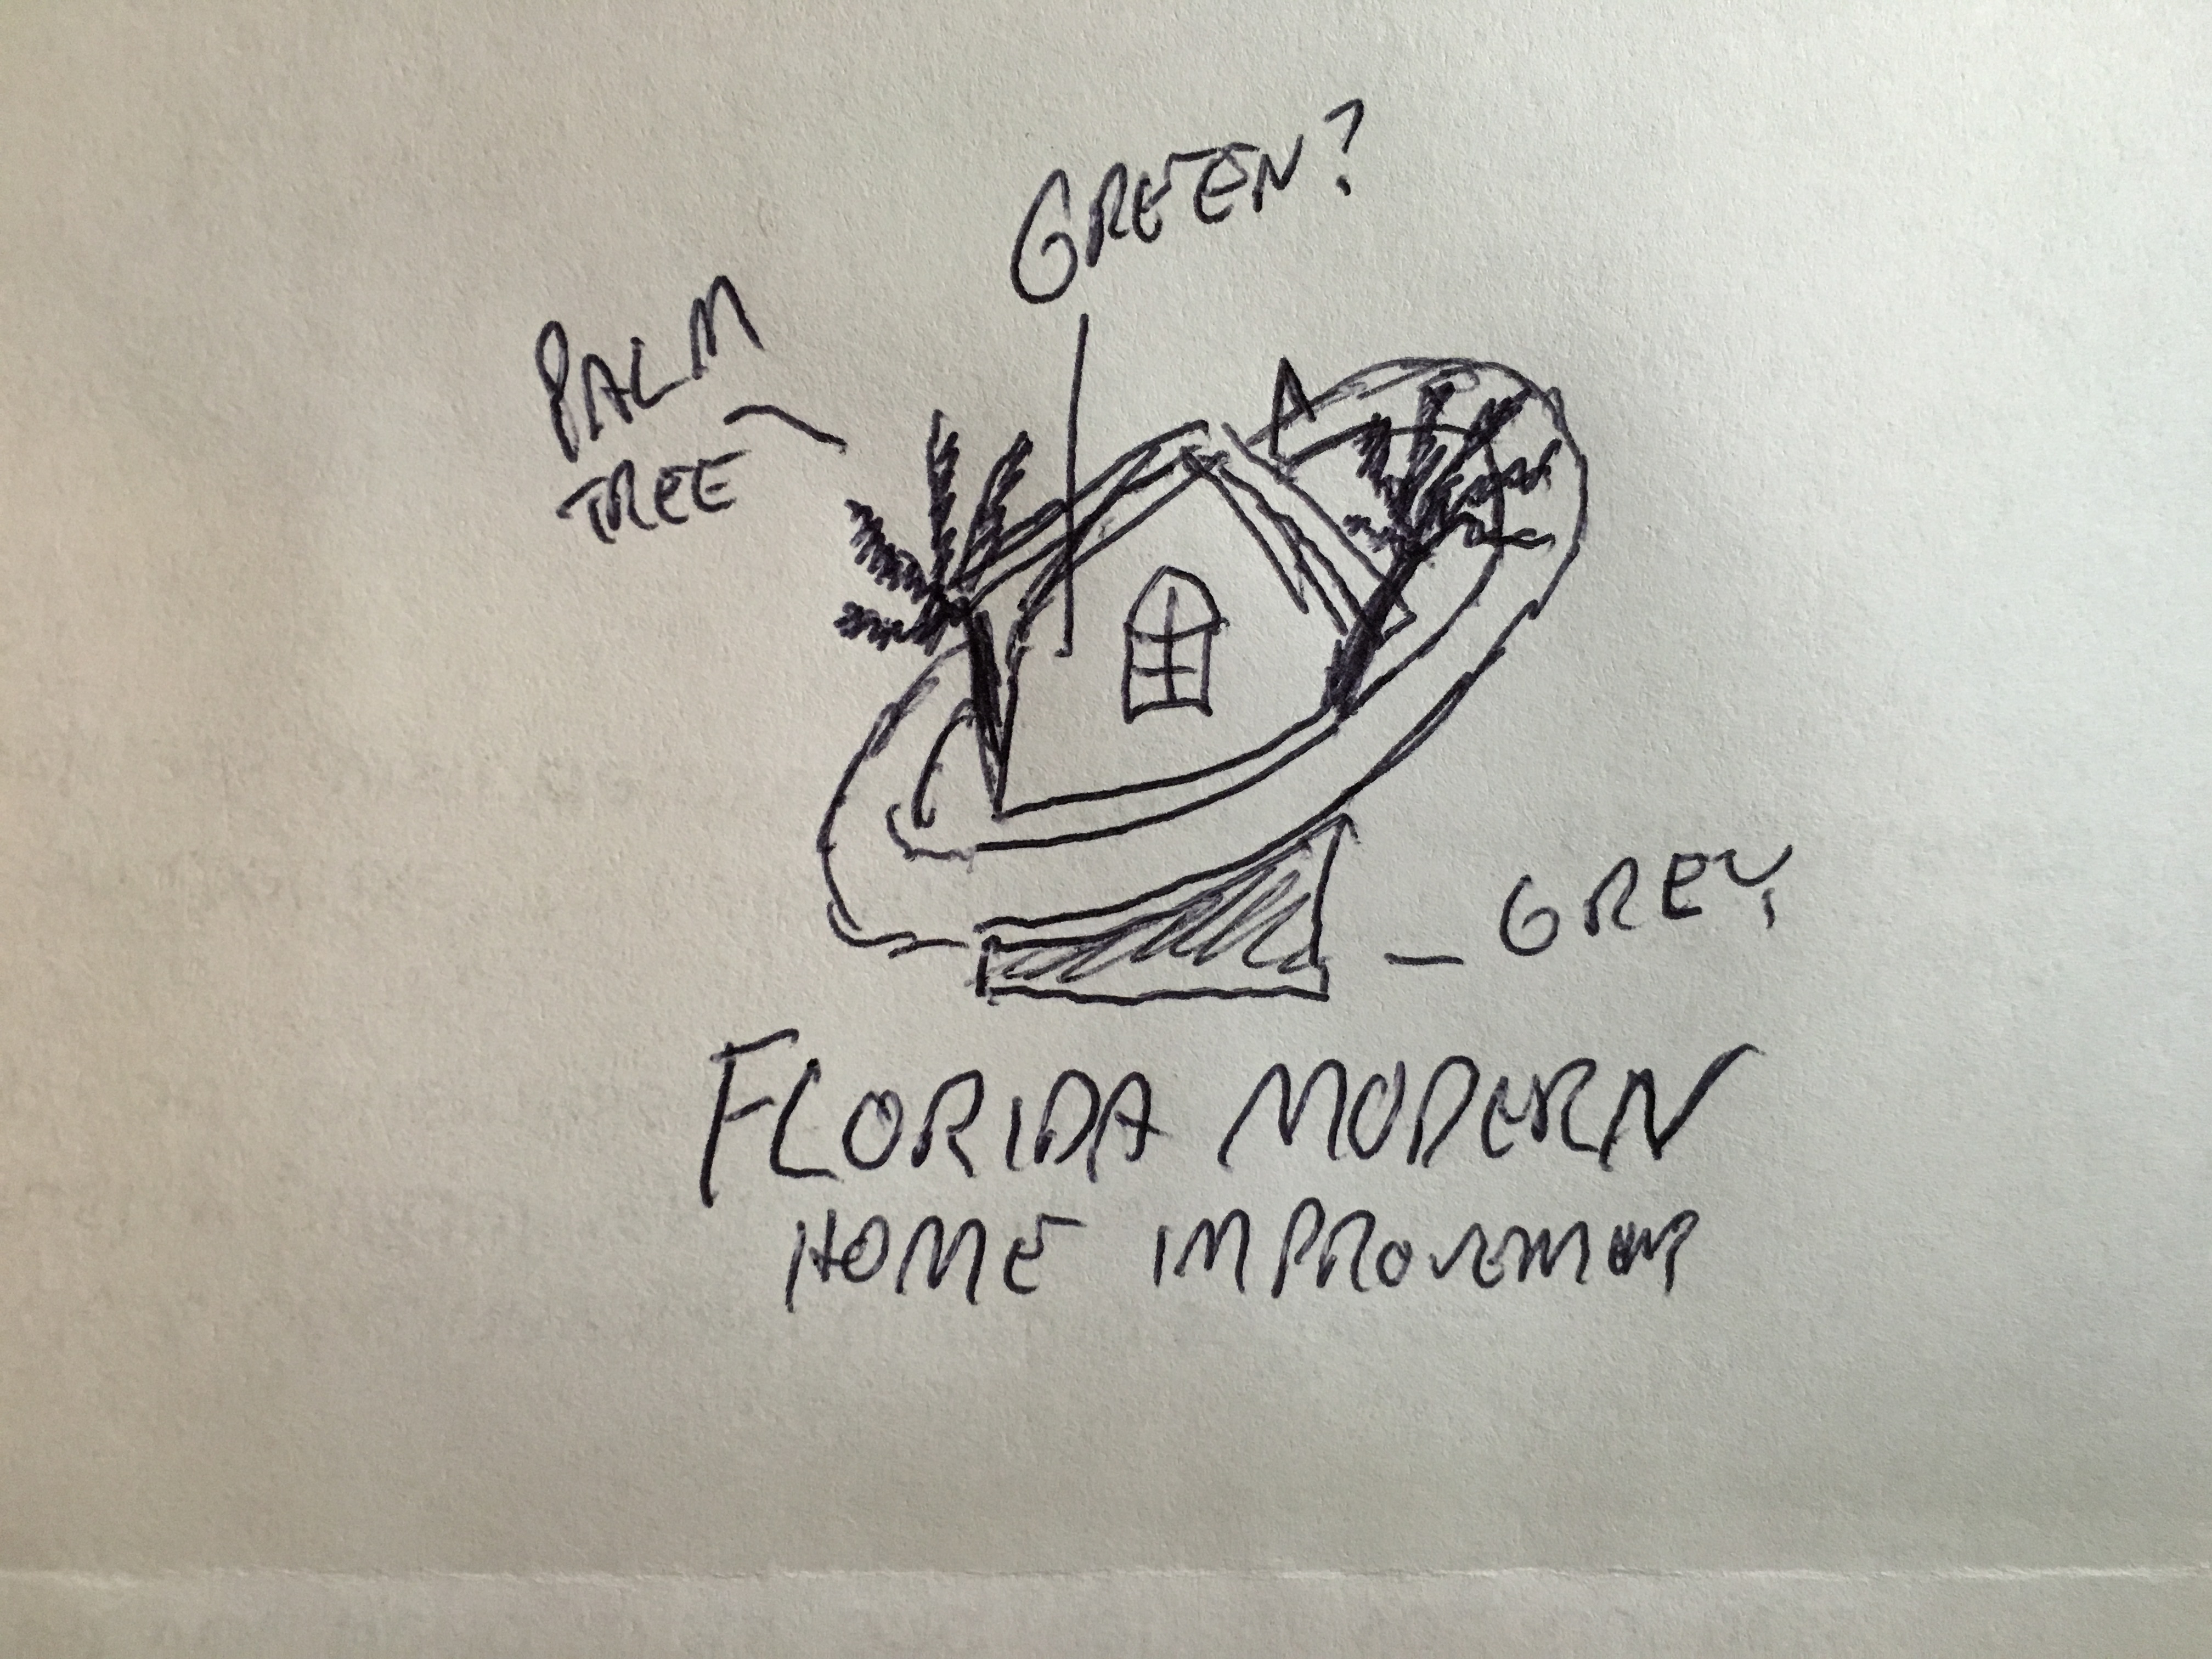 GREEN?
PALM
TREE
GREY
FLORIDA MODERN
HOME IMPROVEMENT